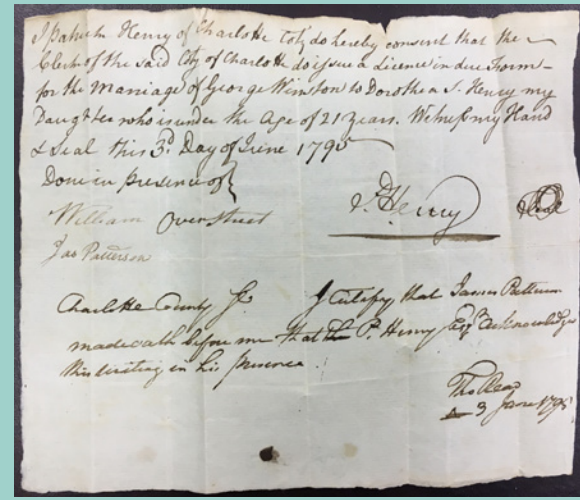 I Patrick Henry of Charlotte Coty do hereby consent that the
Clerk of the said Cty of Charlotte do issue a Licence in due Form
for the Marriage of George Winston to Dorothea S. Henry my
Daughter who is under the Age of 21 years. Witness my Hand
& Seal this 3d Day of June 1795
Done in presence of
P. Henry Seal
William Overstreet
Jas Patterson
Charlotte County Sc. I Certify that James Patterson
made oath before me that P. Henry Esqr. acknowledge
this writing in his presence.
Tho Read
3 June 1795